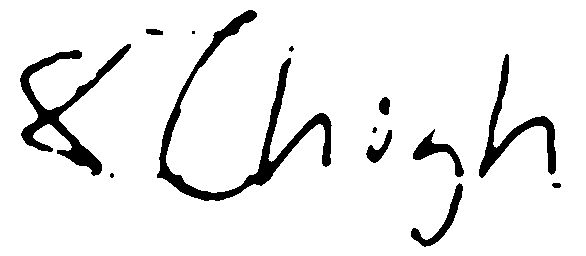 8 Chigh